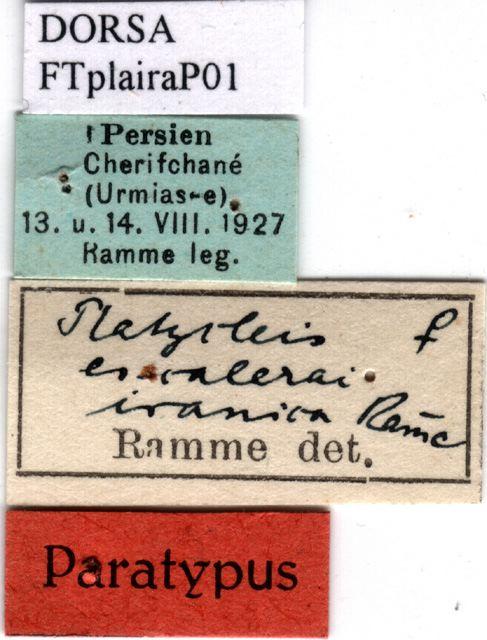 DORSA
FTplairaP01
Persien
Cherifchané
(Urmias-e).
13. u. 14. VIII. 1927
Ramme leg.
Platycleis f
escalerai
iranica Ramme
Ramme det.
Paratypus